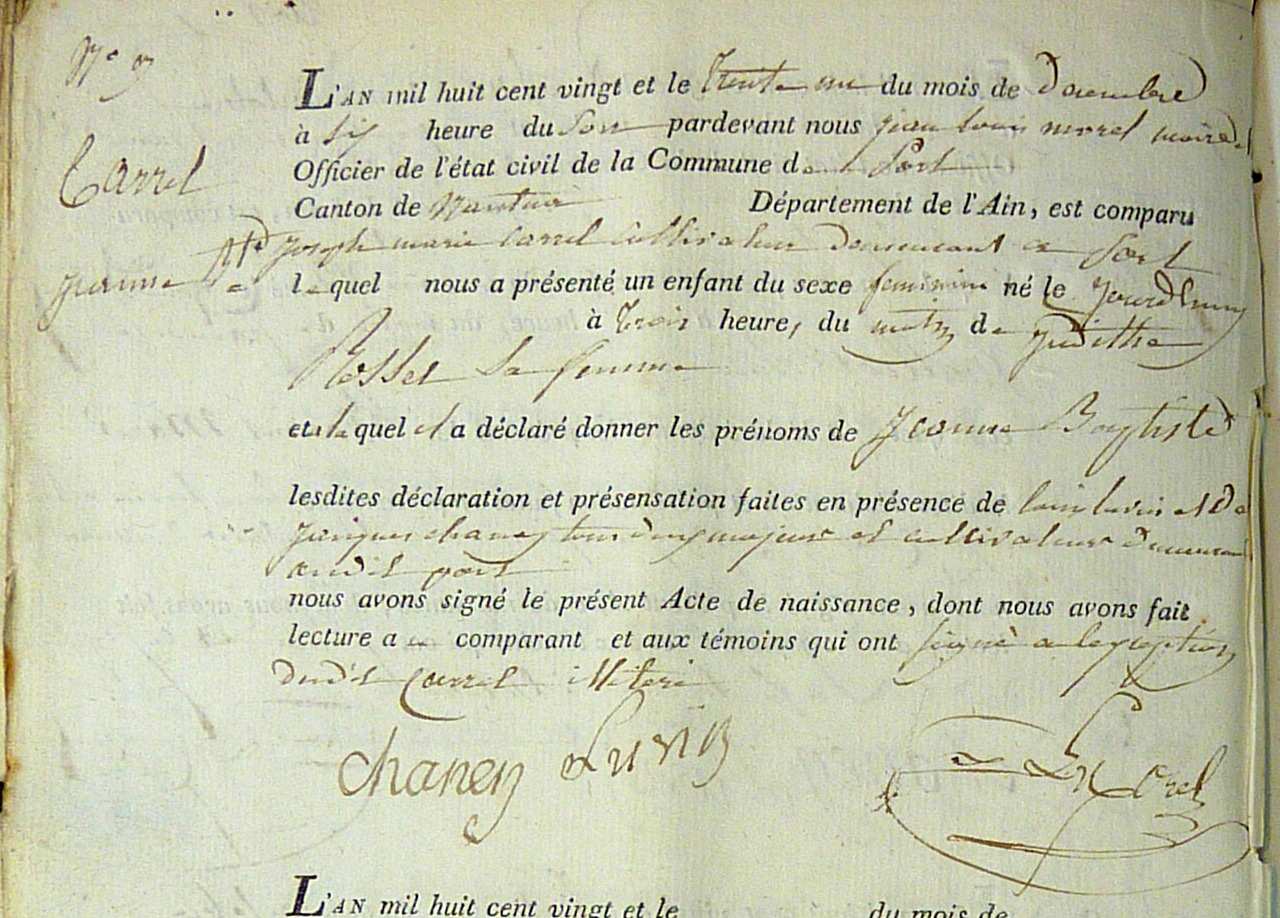 N° 9
L'AN mil huit cent vingt et le trente un du mois de Decembre
à six heure du Soir pardevant nous jean louis morel maire
Officier de l'état civil de la Commune de Port
Carrel
Canton de Nantua Département de l'Ain, est comparu
joseph marie Carrel cultivateur demeurant a Port
jeanne Bte
le quel nous a présenté un enfant du sexe feminin né le jourdhuy
à trois heure, du matin de juditthe
Rosset Sa femme
et le quel il a déclaré donner les prénoms de jeanne Baptiste
lesdites déclaration et présensation faites en présence de et de
jacques chaney tous deux majeur et cultivateur demeurant
audit port
nous avons signé le présent Acte de naissance, dont nous avons fait
lecture a u comparant et aux témoins qui ont signé a lexception
dudit Carrel illiteré
chaney Morel
L'AN mil huit cent vingt et le du mois de